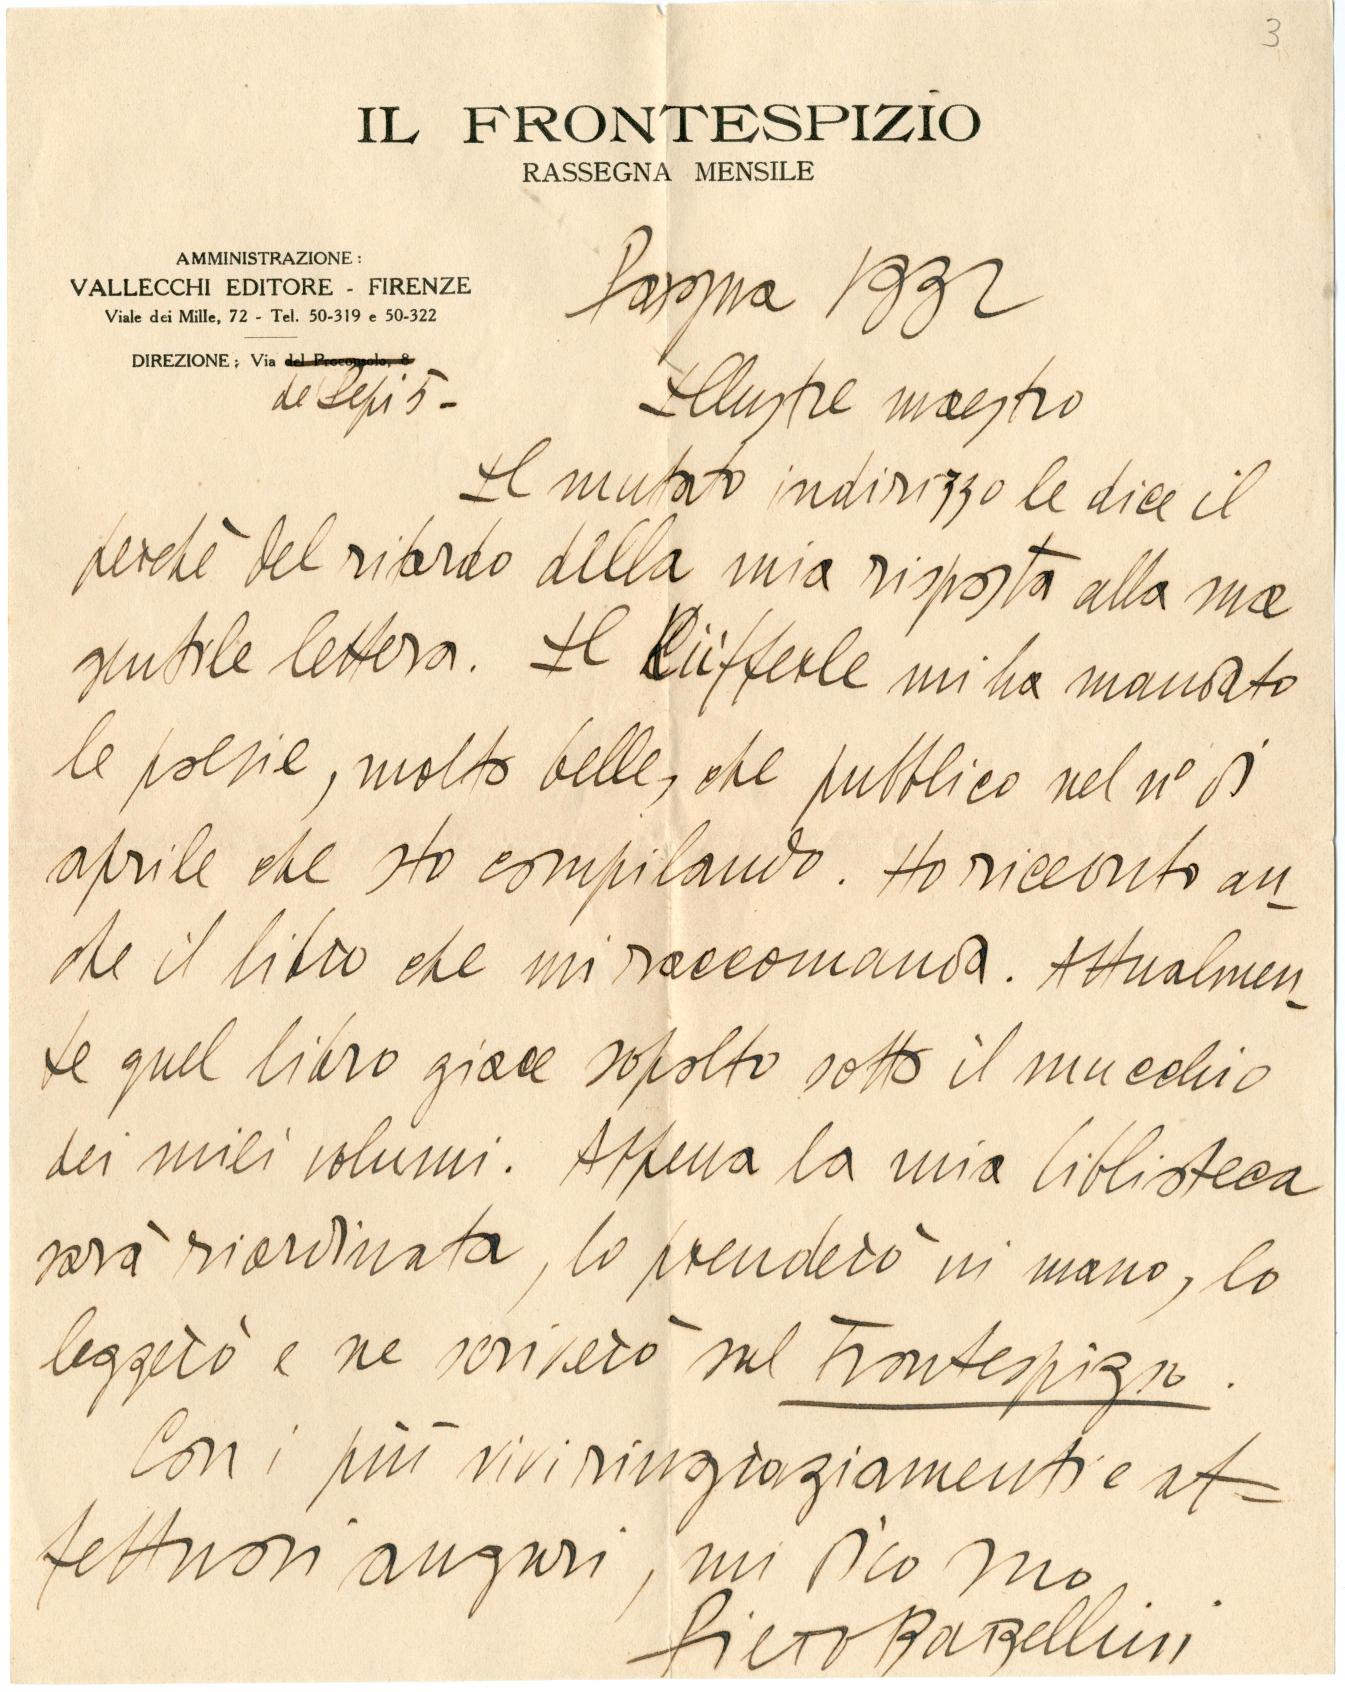 3
IL FRONTESPIZIO
RASSEGNA MENSILE
AMMINISTRAZIONE:
VALLECCHI EDITORE - FIRENZE
Viale dei Mille, 72 - Tel. 50-319 e 50-322
DIREZIONE: Via del Proconsolo, 8
de Pepi 5-
Pasqua 1932
Illustre maestro
Il mutato indirizzo le dice il
perchè del ritardo della mia risposta alla sua
gentile lettera. Il mi ha mandato
le poesie, molto belle, che pubblico nel n° di
aprile che sto compilando. Ho ricevuto an-
che il libro che mi raccomanda. Attualmen-
te quel libro giace sepolto sotto il mucchio
dei miei volumi. Appena la mia biblioteca
sarà riordinata, lo prenderò in mano, lo
leggerò e ne scriverò sul Frontespizio.
Con i più vivi ringraziamenti e af=
fettuosi auguri, mi dico suo
Piero Bargellini